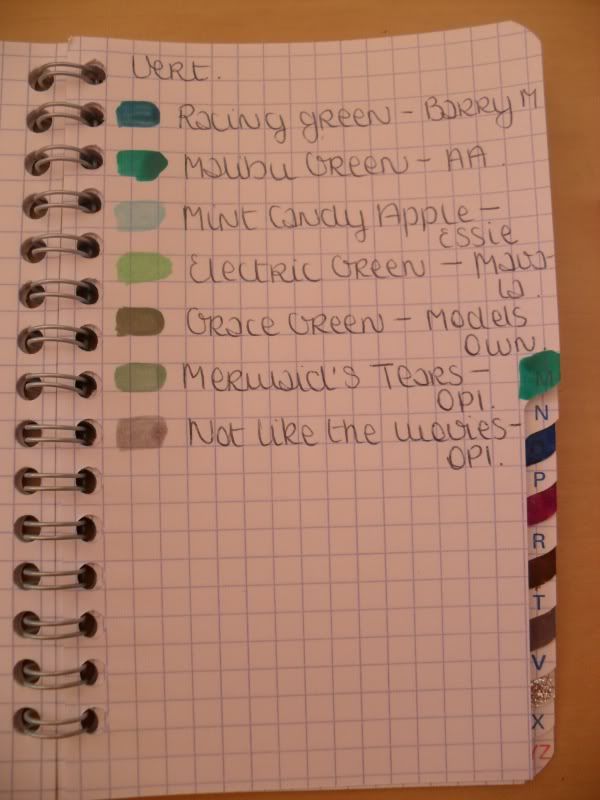 Vert.
Racing green - Barry M
Malibu Green - AA.
Mint Candy Apple -
Essie
Electric Green - Mava-
la.
Grace Green - Models
Own.
Mermaid's Tears -
OPI.
Not like the movies -
OPI.
M
N
P
R
T
V
X
YZ